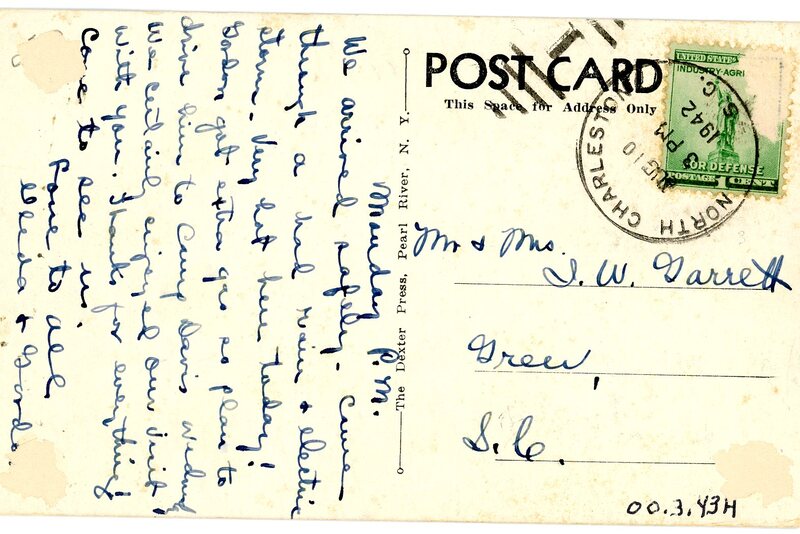 Monday P.M.
We arrived safely. Came
through a bad rain & electric
storm. Very hot here today!
Gordon got extra gas so plan to
drive him to Camp Davis Wednes.
We certainly enjoyed our visit
with you. Thanks for everything!
Come to see us.
Love to all
&
POST CARD
This Space for Address Only
The Dexter Press, Pearl River, N. Y.
UNITED STATES
INDUSTRY-AGRI
FOR DEFENSE
POSTAGE 1 CENT
NORTH CHARLESTON S. C.
AUG 10
3 PM
1942
Mr & Mrs.
J. W. Garrett
Greer,
S.C.
00.3.43H